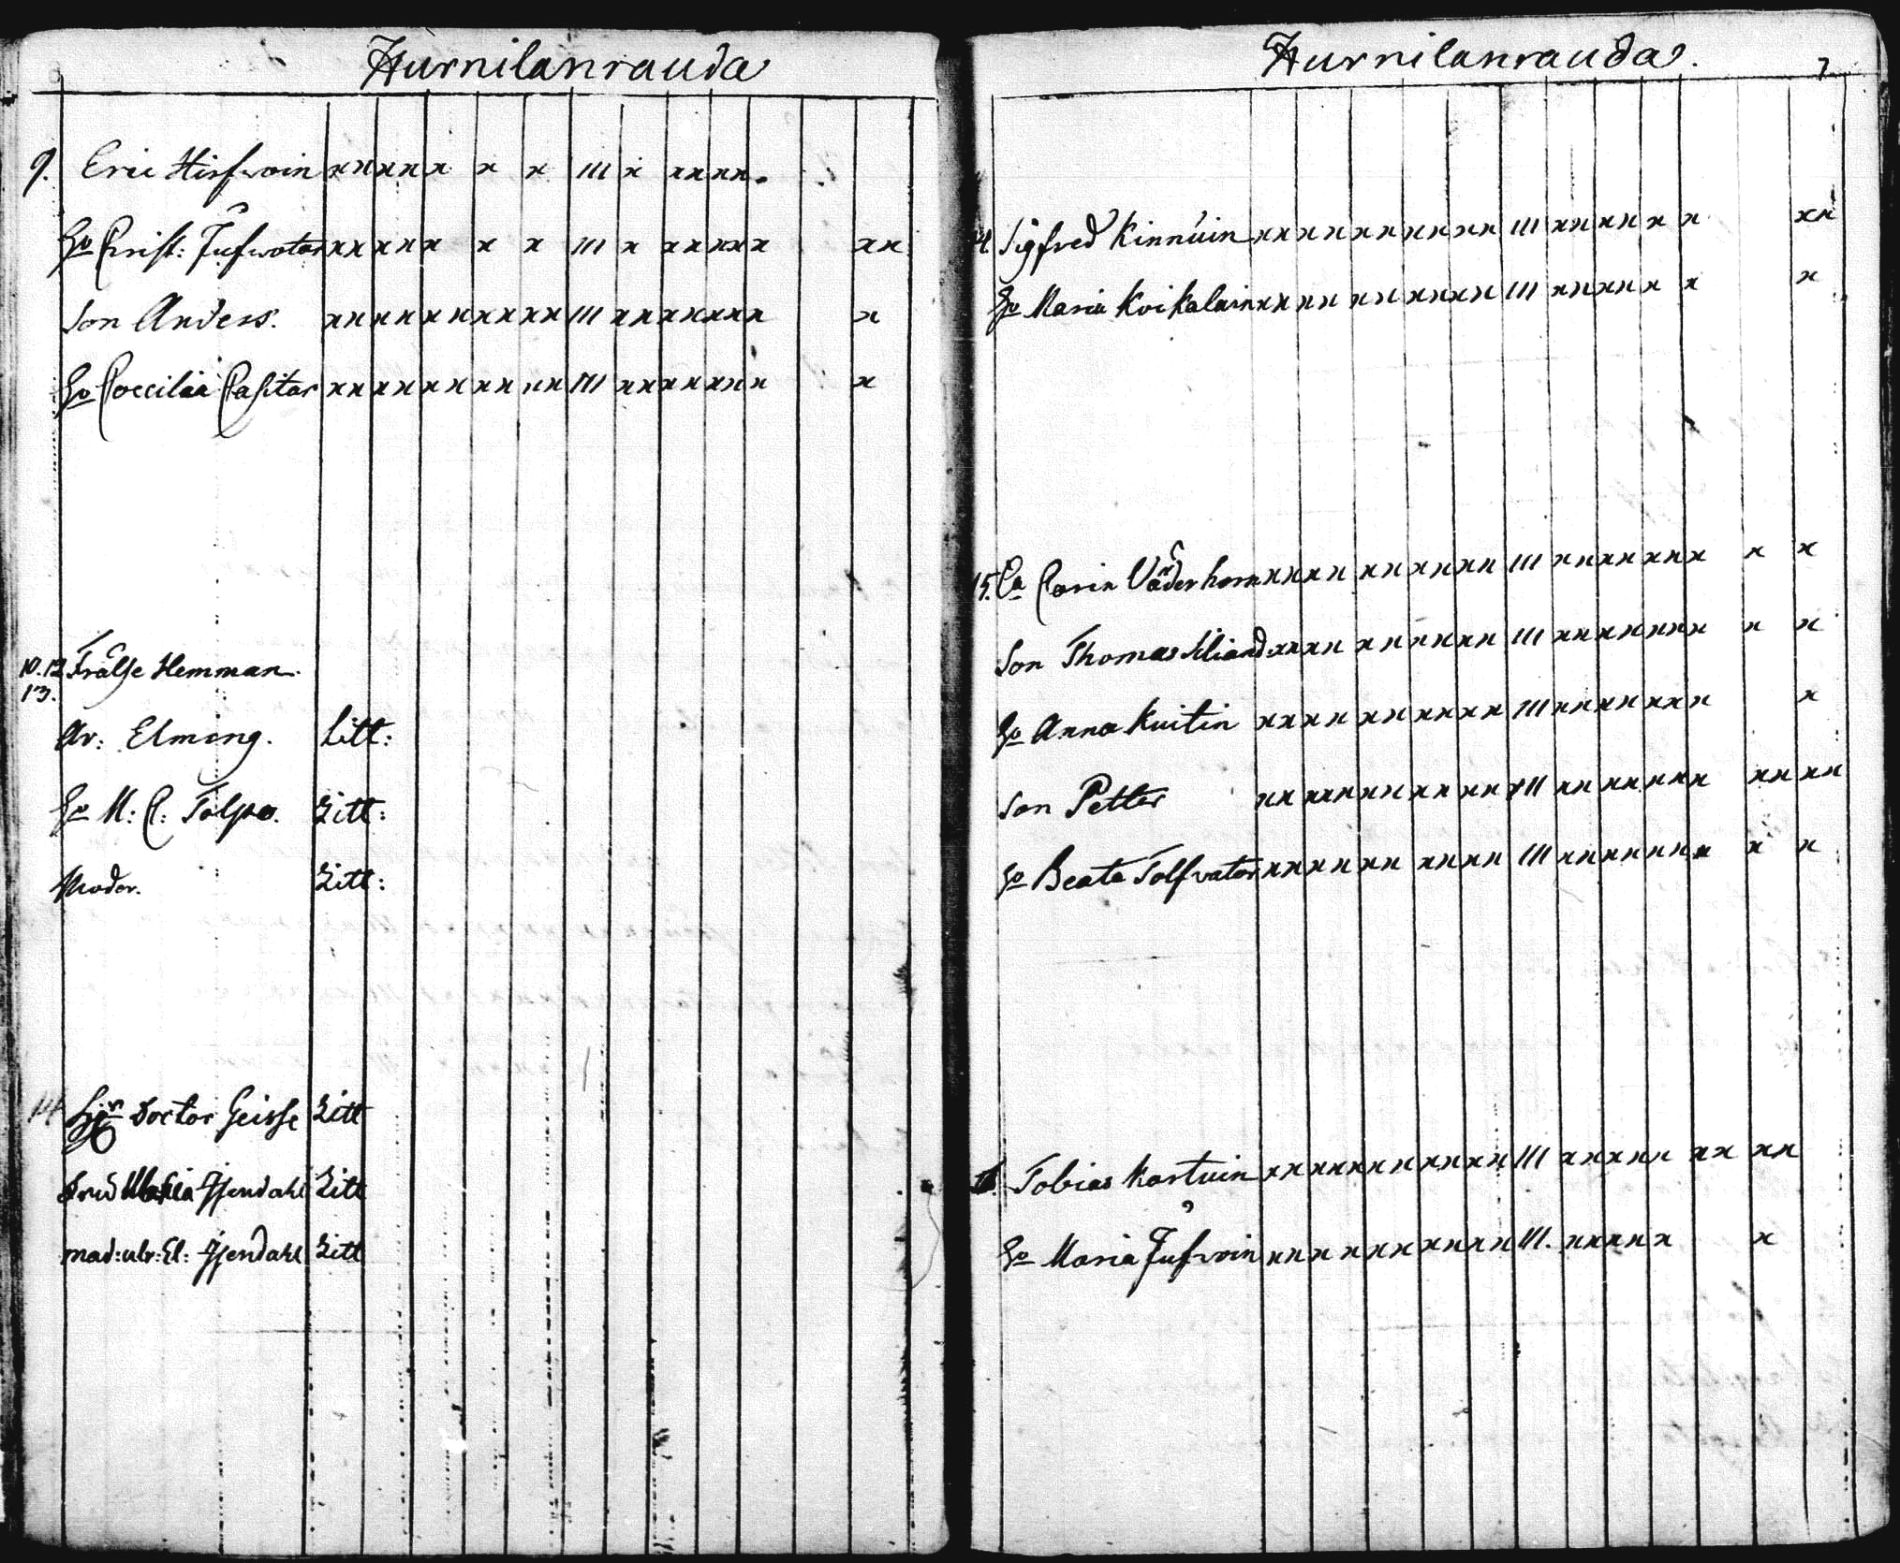 Hurnilanrauda
9. Eric Hirfwoin xx xx x x x III x xx xx
ho Christ: Jufwotar xx xx x x x III x xx xx x xx
Son Anders. xx xx xx xx xx III xx xx xx x x
ho Coecilia Casitar xx xx xx xx xx III xx xx xx x x
10.12 Frälse Hemman.
13.
Ar: Elming. Litt:
ho M: C: Tolpo. Litt:
Moder. Litt:
14 Doctor Geisse Litt
Fru Maria Litt
mad: ulr: El: Litt
Hurnilanrauda. 7
Sigfred Kinnuin xx xx xx xx xx III xx xx x x xx
ho Maria Koikalain xx xx xx xx xx III xx xx x x x
15. Ea Carin Väderhorn xx xx xx xx xx III xx xx xx x x x
Son Thomas xx xx xx xx xx III xx xx xx x x x
ho Anna Kuitin xx xx xx xx xx III xx xx xx x x
Son Petter xx xx xx xx xx III xx xx xx x xx xx
ho Beata Tolfvatar xx xx xx xx xx III xx xx xx x x x
Tobias Kartuin xx xx xx xx xx III xx xx x xx xx
ho Maria Jufwoin xx x xx x xx xx III. xx xx x x